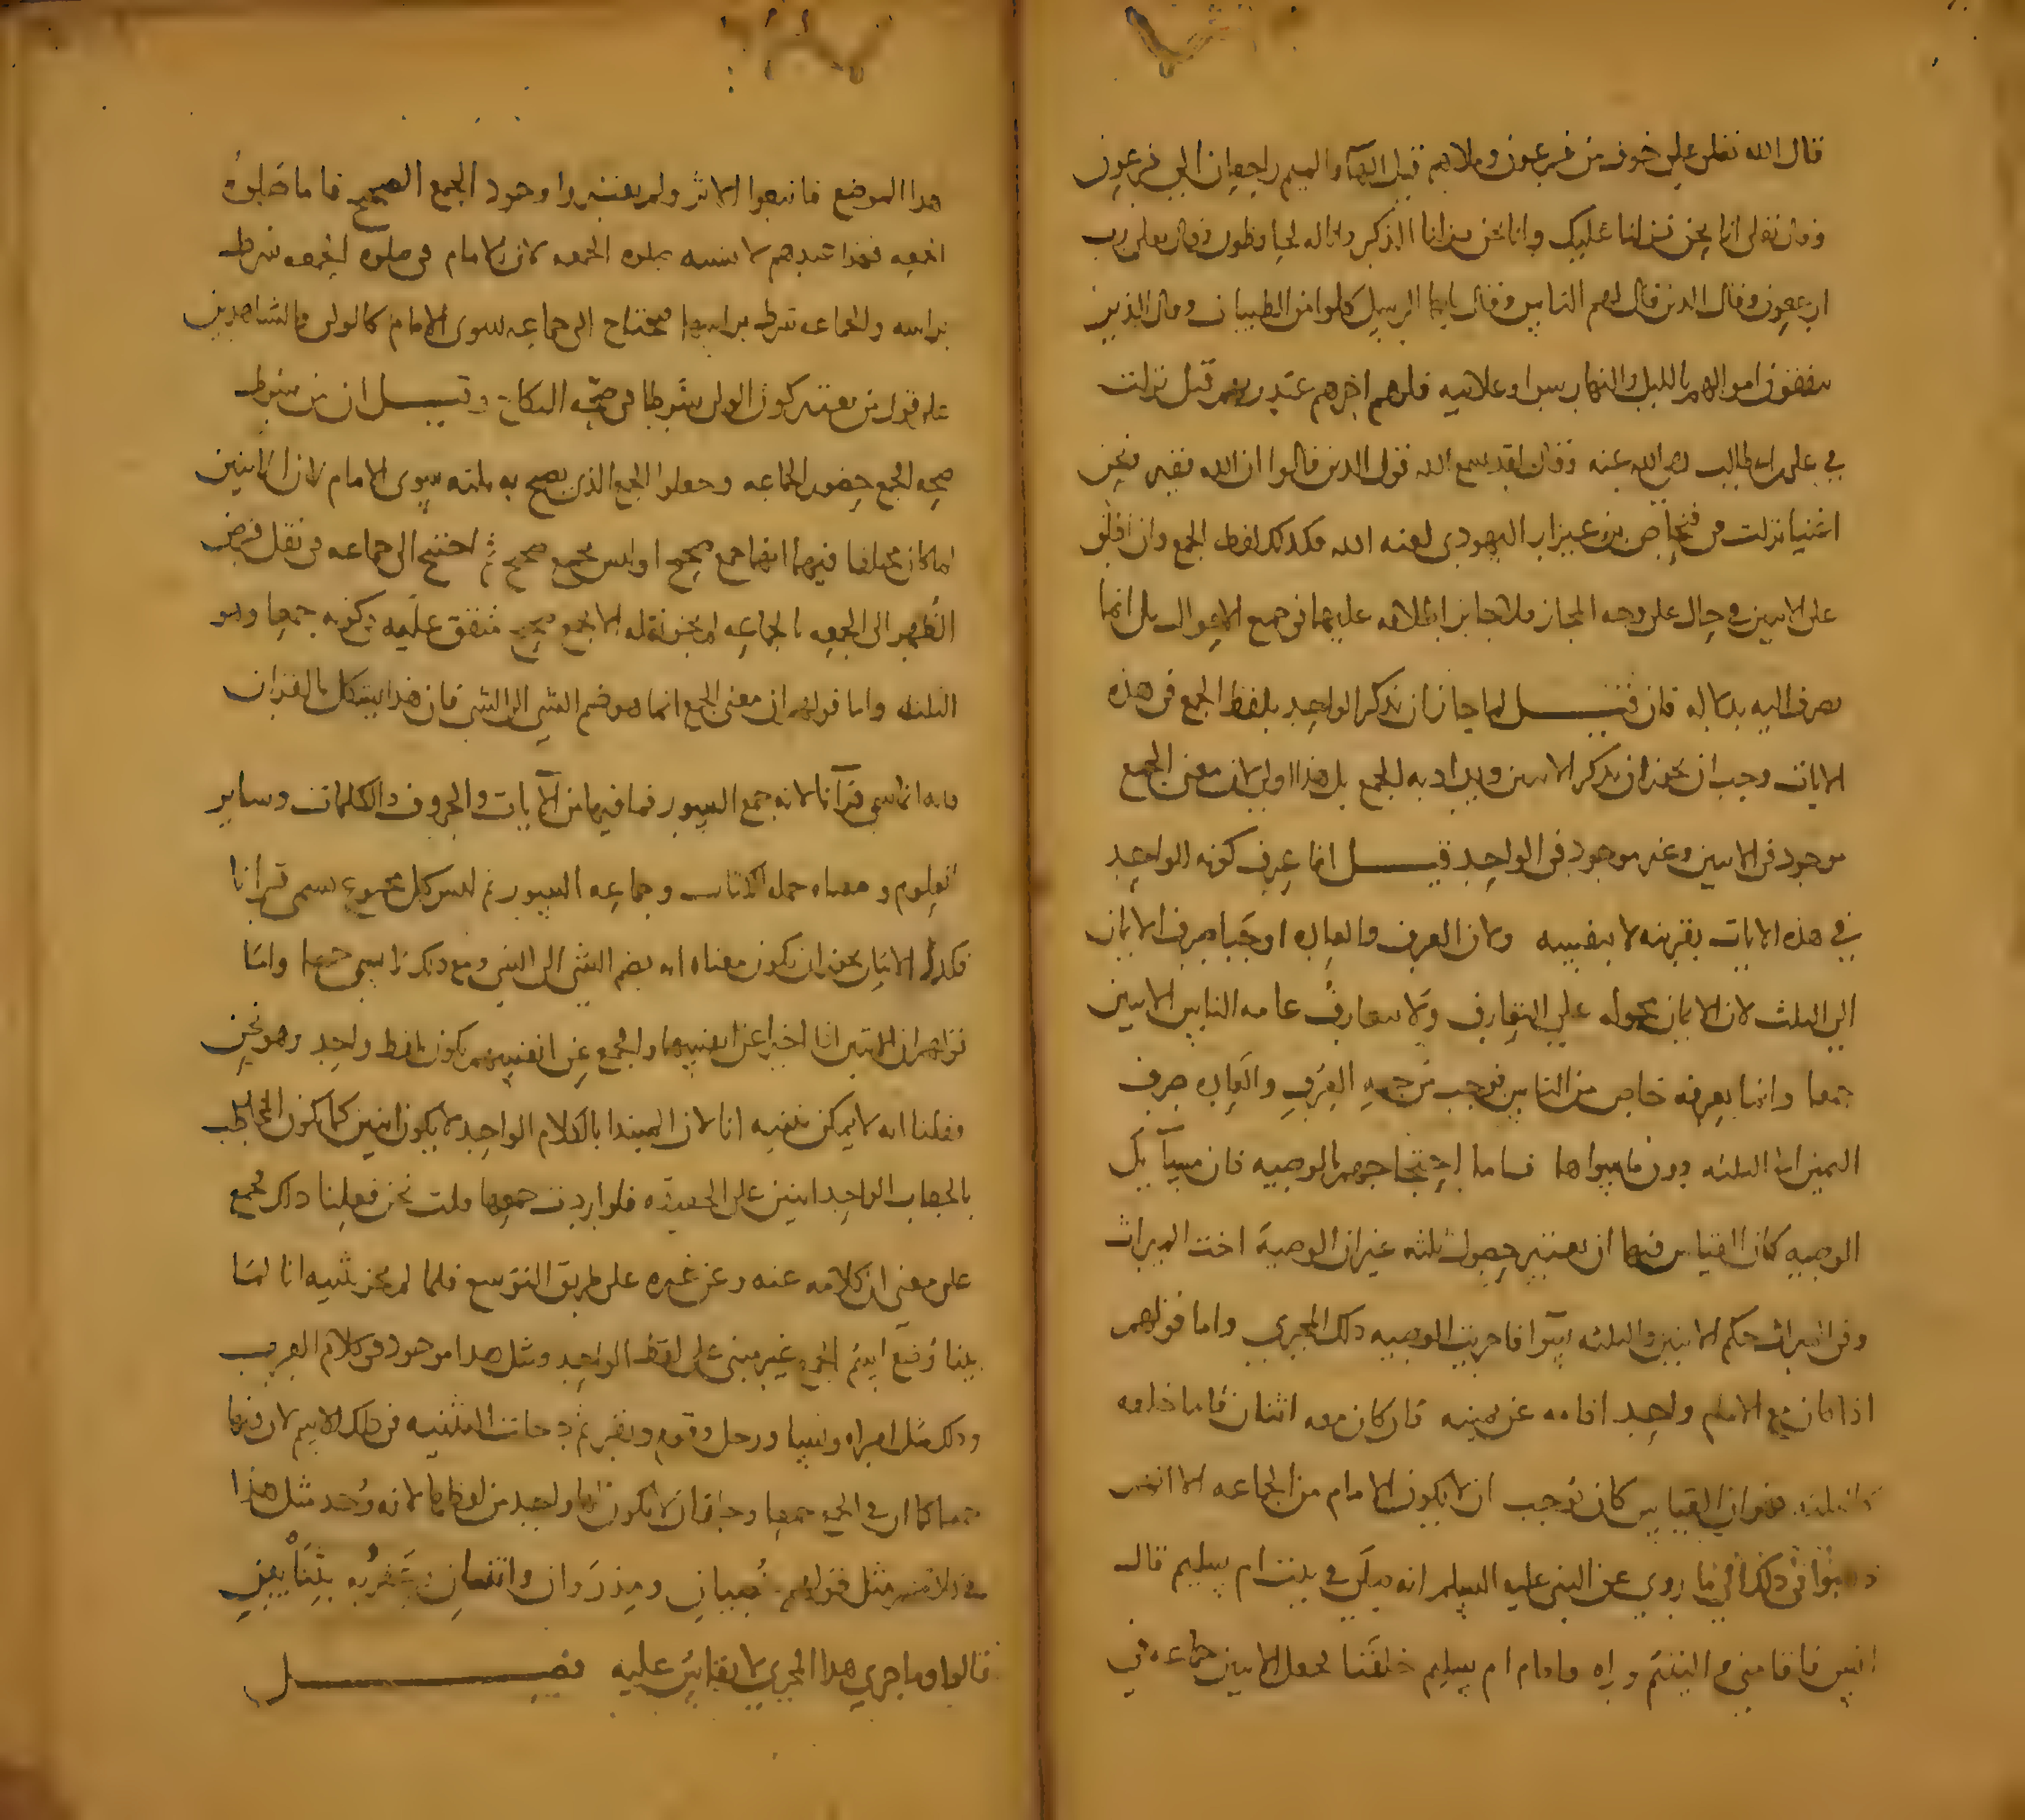 قال الله تعلى على خوف من فرعون وملاهم قيل الهآ والميم راجعان الى فرعون
وقال تعلى انا نحن نزلنا عليك وانا نحن نزلنا الذكر وانا له لحافظون وقال تعلى رب
ارجعون وقال الذين قال لهم الناس وقال يايها الرسل كلوا من الطيبات وقال الذين
ينفقون اموالهم بالليل والنهار سرا وعلانيه فلهم اجرهم عند ربهم قيل نزلت
في على بن ابي طالب رضي الله عنه وقال لقد سمع الله قول الذين قالوا ان الله فقير ونحن
اغنيا نزلت في فنحاص بن عيزار اليهودي لعنه الله فكذلك لفظ الجمع وان اطلق
على الاثنين في حال على وجه المجاز فلا جايز اطلاقه عليهما في جميع الاحوال بل انما
يصرف اليه بدلاله فان قيل لما جاز ان يذكر الواحد بلفظ الجمع في هذه
الايات وجب ان يجوز ان يذكر الاثنين ويراد به الجمع بل هذا اولى لان معنى الجمع
موجود في الاثنين وغير موجود في الواحد قيل انما عرف كونه الواحد
في هذه الايات بقرينه لا بنفسه ولان العرف والعاده اوجبا صرف الايمان
الى الثلث لان الايمان محموله على التعارف ولا يتعارف عامه الناس الاثنين
جمعا وانما يعرفه خاص من الناس فوجب من جهه العرف والعاده صرف
اليمين الى الثلثه دون ما سواها فاما احتجاجهم بالوصيه فان مسآيل
الوصيه كان القياس فيها ان يعتبر حصول ثلثه غير ان الوصية اخت الميراث
وفي الميراث حكم الاثنين والثلثه سوآ فاجريت الوصيه ذلك المجرى واما قولهم
اذا كان مع الامام واحد اقامه عن يمينه فان كان معه اثنان قاما خلفه
كالثلثه فهو ان القياس كان يوجب ان لا يكون الامام من الجماعه الا انهم
ذهبوا في ذلك الى ما روي عن النبى عليه السلم انه صلى في بيت ام سليم قال
انس فاقامنى واليتيم وراه واقام ام سليم خلفنا فجعل الاثنين جماعه في
هذا الموضع فاتبعوا الاثر ولم يعتبروا وجود الجمع الصحيح فاما صلوة
الجمعه فهذا عندهم لا يشبه صلوه الجمعه لان الامام في صلوه الجمعه شرط
براسه والجماعه شرط براسها فيحتاج الى جماعه سوى الامام كالولى والشاهدين
على قول من يعتبر كون الولى شرطا في صحه النكاح وقيل ان من شرط
صحه الجمع حضور الجماعه وجعلوا الجمع الذي يصح به ثلثه سوى الامام لان الاثنين
لما كان مختلفا فيهما انهما جمع صحيح او ليس بجمع صحيح ثم احتيج الى جماعه في نقل فرض
الظهر الى الجمعه بالجماعه لم يجز نقله الا بجمع صحيح متفق عليه في كونه جمعا وهو
الثلثه واما قولهم ان معنى الجمع انما هو ضم الشى الى الشى فان هذا يشكل بالقران
فانه انما سمى قرآنا لانه جمع السور فما فيها من الآيات والحروف والكلمات وساير
العلوم ومعناه جمله الكتاب وجماعه السور ثم ليس كل مجموع يسمى قرانا
فكذا الاثنان يجوز ان يكون معناه انه بضم الشى الى الشى ومع ذلك لا يسمى جمعا واما
قولهم ان الاثنين اذا اخبرا عن انفسهما والجمع عن انفسهم يكون بلفظ واحد وهو نحن
فعلنا انه لا يمكن تثنيه انا لان المبتدا بالكلام الواحد لا يكون اثنين كما يكون المخاطب
بالخطاب الواحد اثنين على الحقيقه فلو اردت جمعها قلت نحن فعلنا ذلك فجمع
على معنى ان كلامه عنه وعن غيره على طريق التوسع فلما لم يجز تثنيه انا لما
بينا وضع اسم الجمع غير مبنى على لفظ الواحد ومثل هذا موجود في كلام العرب
وذلك مثل امراه ونسا ورجل وقوم ونفر ثم جات التثنيه في ذلك الاسم لان فيها
جمعا كما ان في الجمع جمعا وجاز ان لا يكون لها واحد من لفظها لانه وجد مثل هذا
في كلامهم مثل قولهم خصيان ومذروان واثنان وضربه بثنايين
قالوا وما جرى هذا المجرى لا يقاس عليه فصل